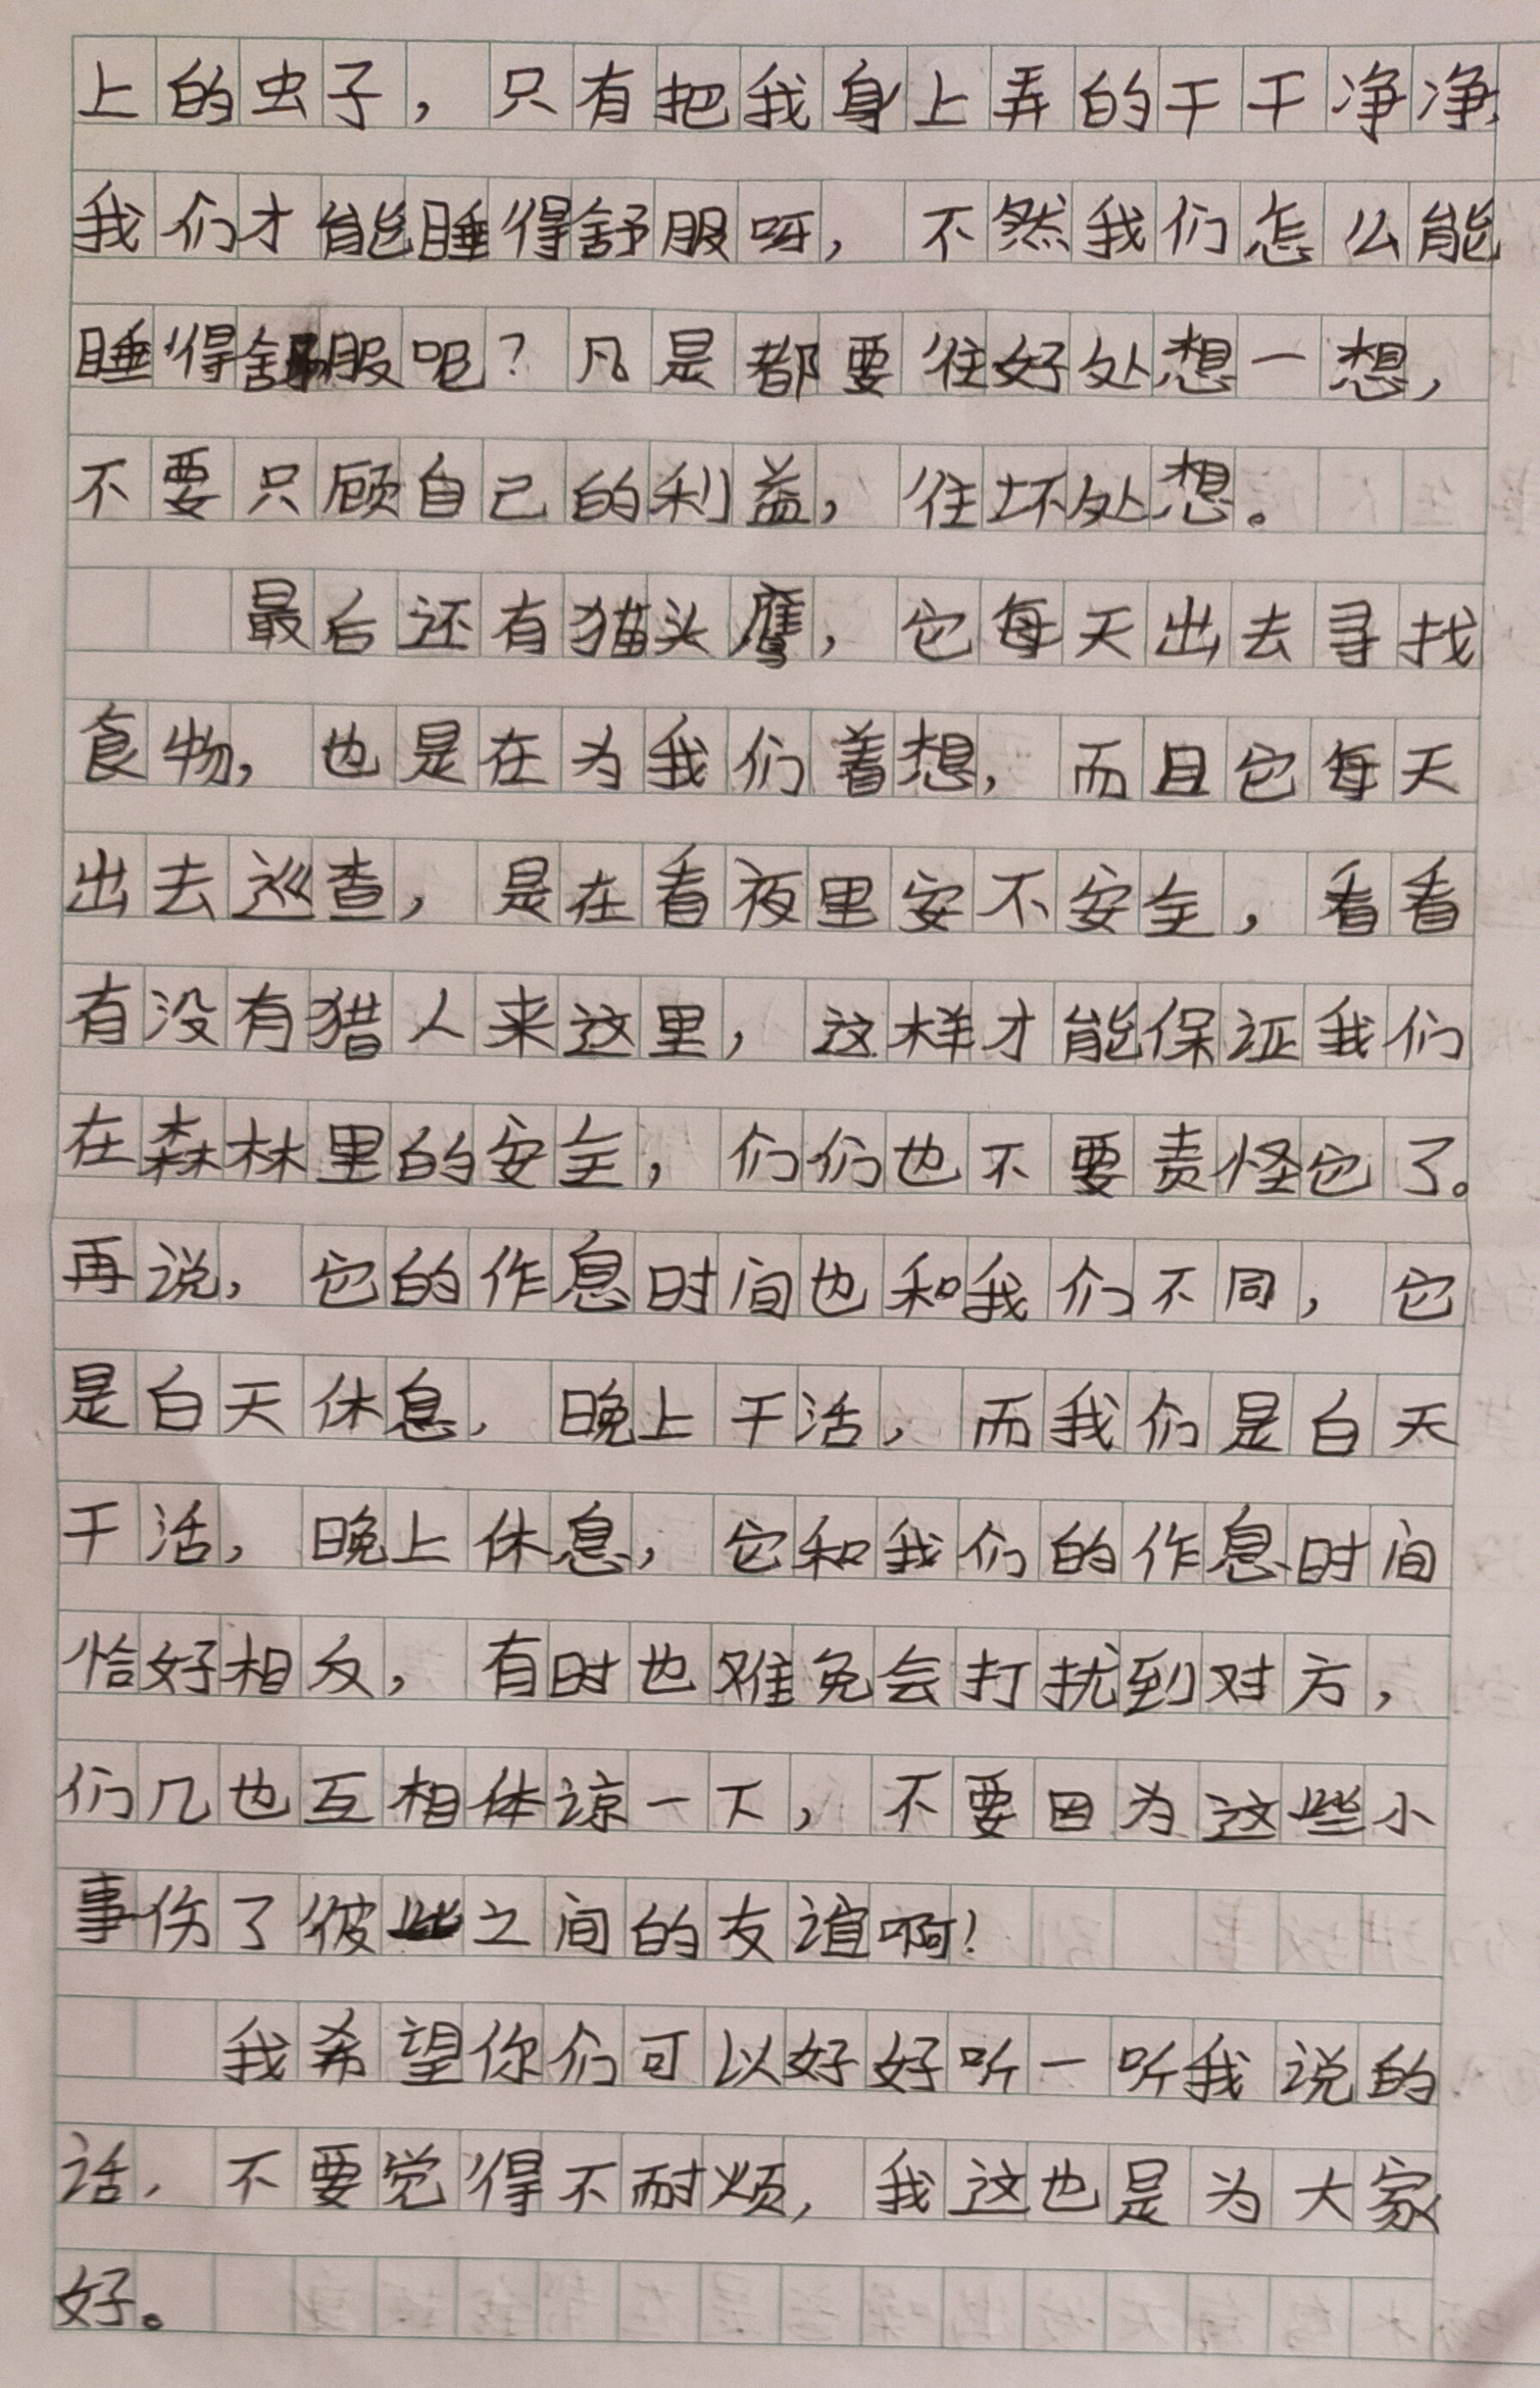 上的虫子，只有把我身上弄的干干净净，
我们才能睡得舒服呀，不然我们怎么能
睡得舒服呢？凡是都要往好处想一想，
不要只顾自己的利益，往坏处想。
最后还有猫头鹰，它每天出去寻找
食物，也是在为我们着想，而且它每天
出去巡查，是在看夜里安不安全，看看
有没有猎人来这里，这样才能保证我们
在森林里的安全，们们也不要责怪它了。
再说，它的作息时间也和我们不同，它
是白天休息，晚上干活，而我们是白天
干活，晚上休息，它和我们的作息时间
恰好相反，有时也难免会打扰到对方，
们几也互相体谅一下，不要因为这些小
事伤了彼此之间的友谊啊！
我希望你们可以好好听一听我说的
话，不要觉得不耐烦，我这也是为大家
好。